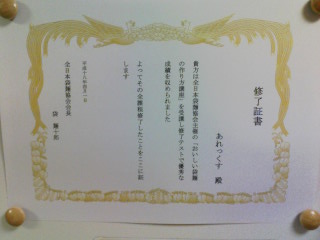 修了証書
あれっくす 殿
貴方は全日本袋麺協会主催の「おいしい袋麺
の作り方講座」を受講し修了テストで優秀な
成績を収められました
よってその全課程修了したことをここに証
します
平成十八年四月一日
全日本袋麺協会会長
袋 麺十郎